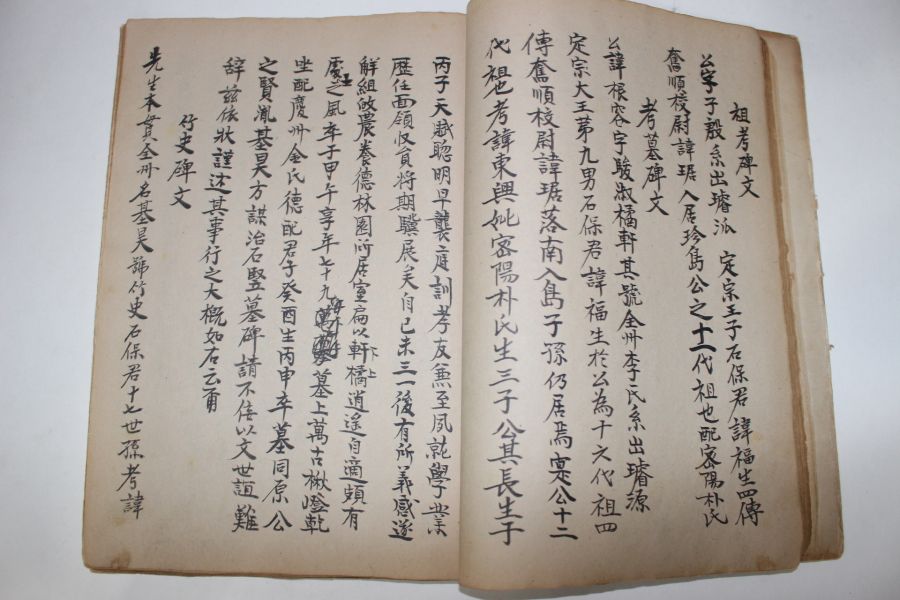 祖考碑文
公字子毅系出璿派 定宗王子石保君諱福生四傳
奮順校尉諱琚入居珍島公之十一代祖也配密陽朴氏
考墓碑文
公諱根容字駿淑橘軒其號全州李氏系出璿源
定宗大王第九男石保君諱福生於公為十六代祖四
傳奮順校尉諱琚落南入島子孫仍居焉寔公十二
代祖也考諱東興妣密陽朴氏生三子公其長生于
丙子天賦聰明早襲庭訓孝友兼至夙就學業
歷任面領收員將期驥展矣自己未三一後有所義感遂
解組啟農養德林園所居室扁以軒橘逍遙自適頗有
處士之風卒于甲午享年七十九 墓上萬古楸嶝乾
坐配慶州金氏德配君子癸酉生丙申卒墓同原公
之賢胤基昊方謀治石竪墓碑請不佞以文世誼難
辭玆依狀謹述其事行之大槪如右云爾
竹史碑文
先生本貫全州名基昊號竹史石保君十七世孫考諱